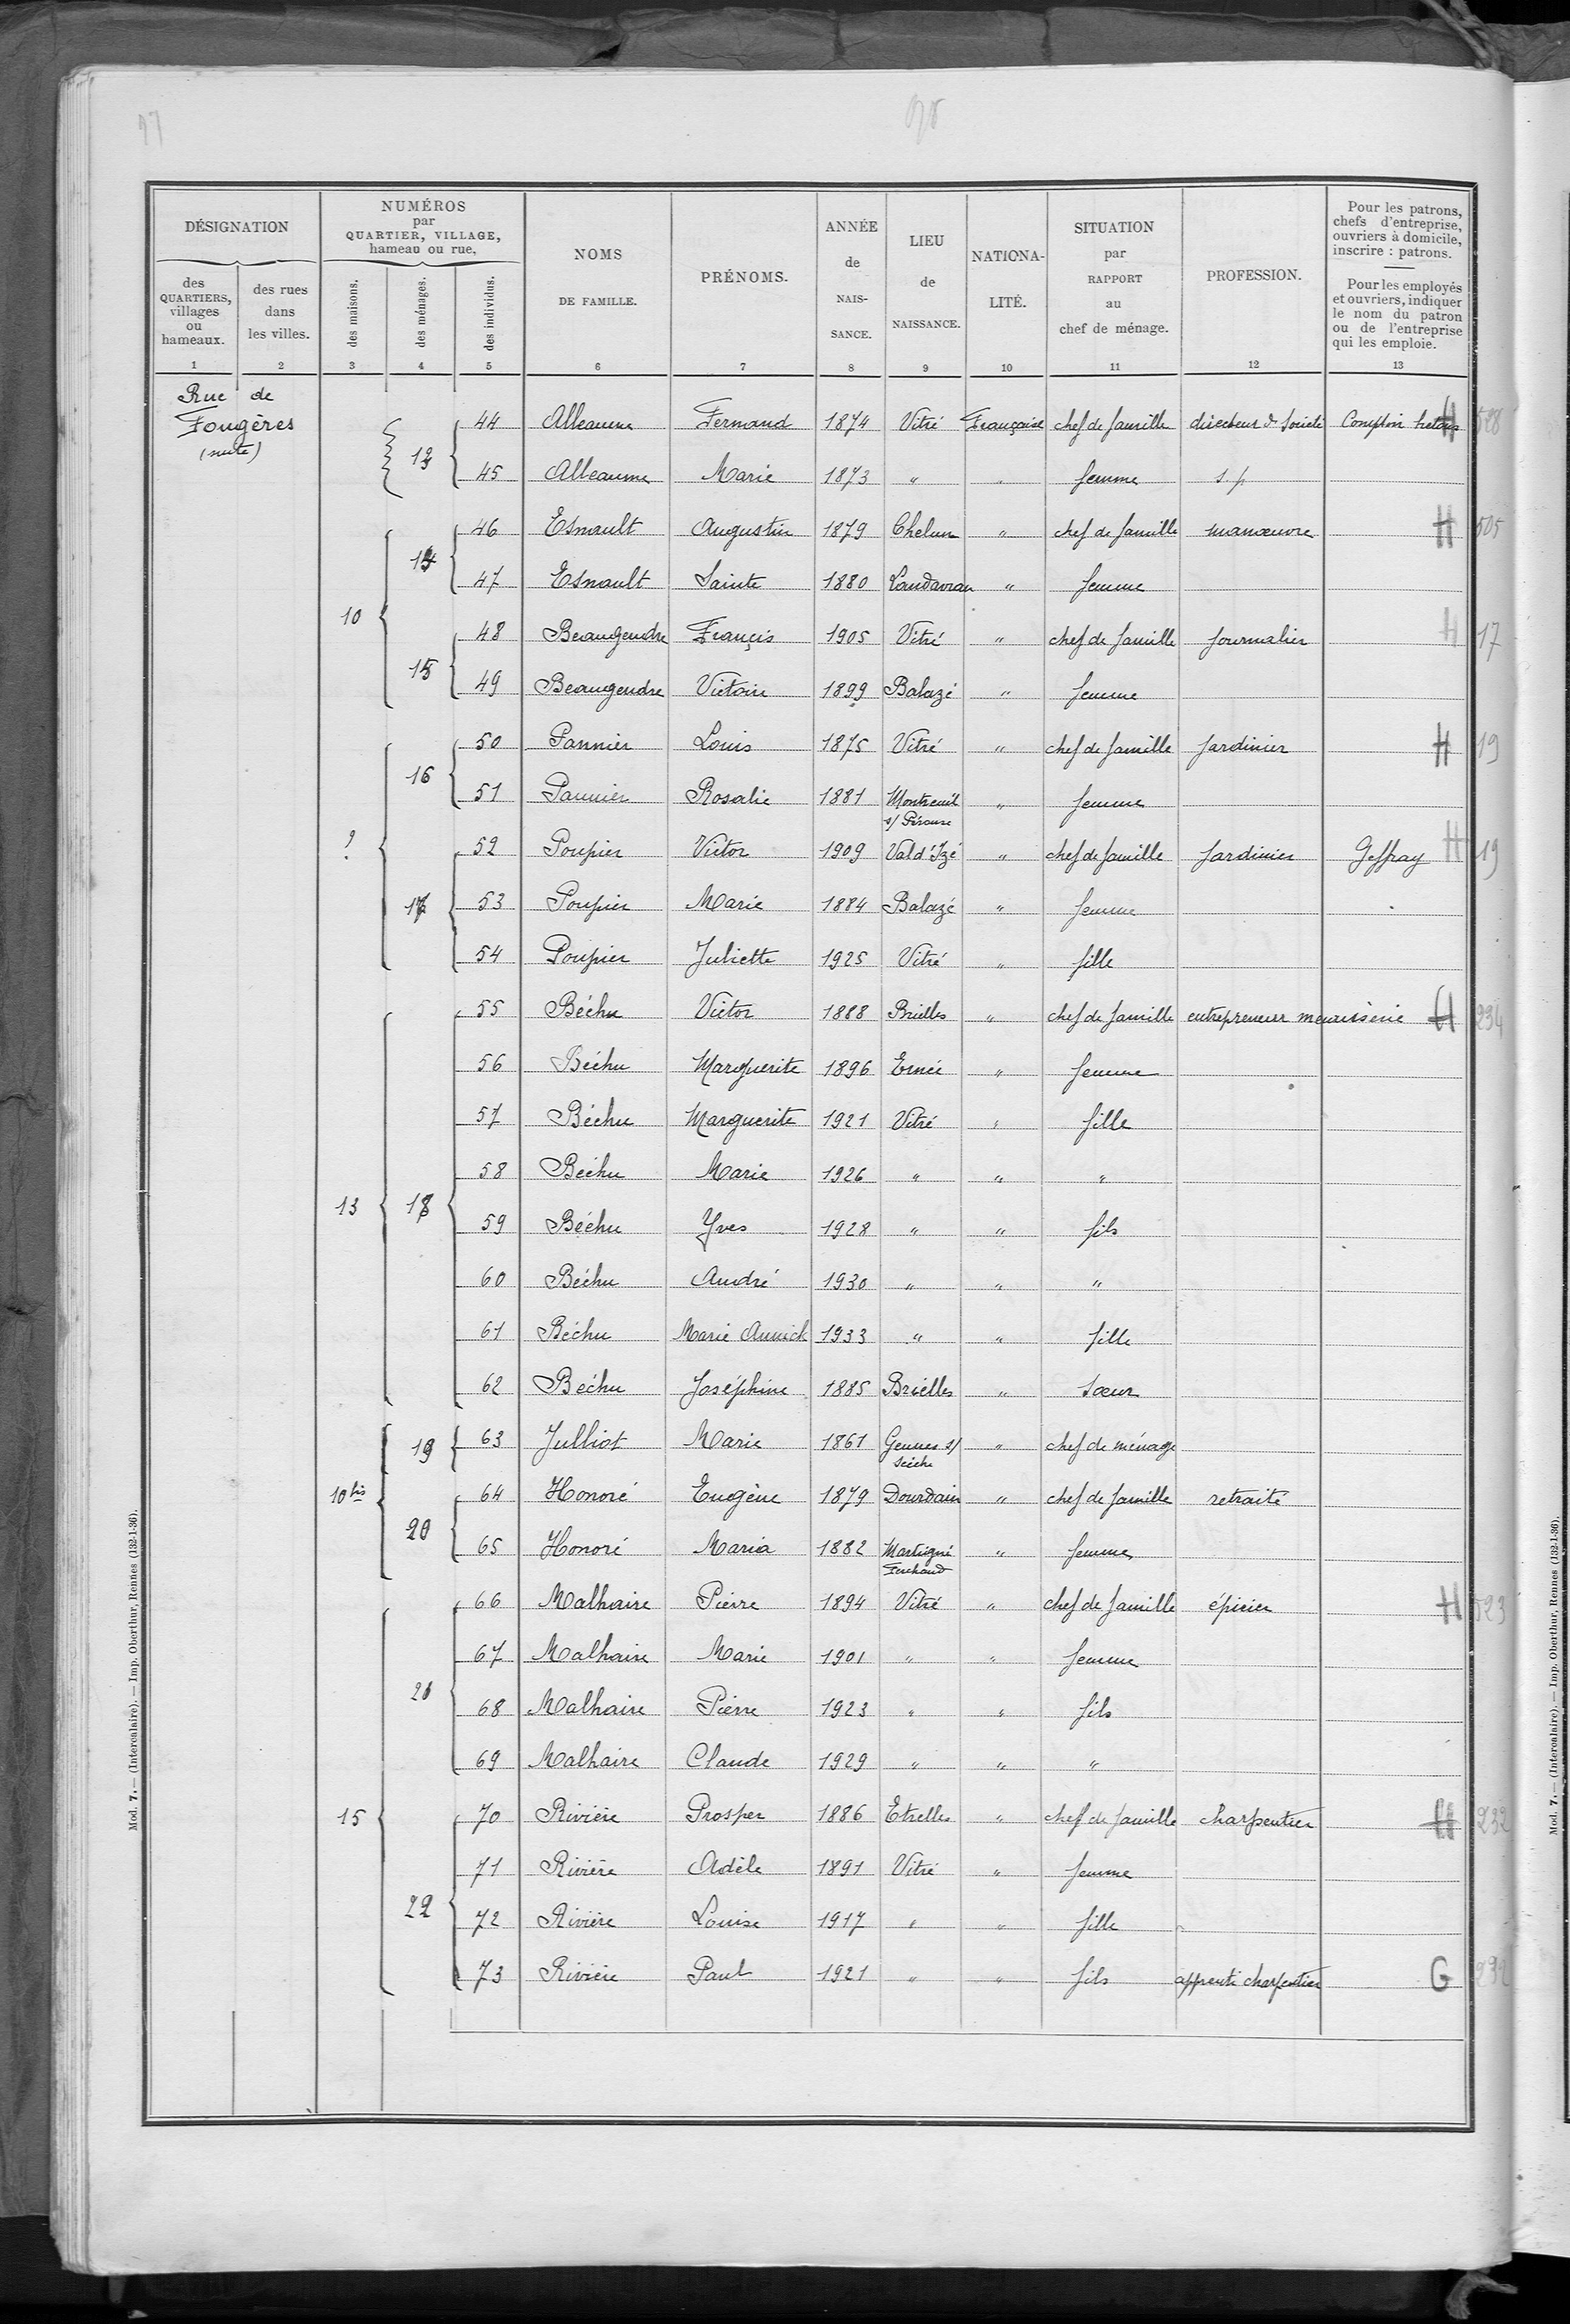 DÉSIGNATION
des QUARTIERS, villages ou hameaux.
des rues dans les villes.
NUMÉROS par QUARTIER, VILLAGE, hameau ou rue.
des maisons.
des ménages.
des individus.
NOMS DE FAMILLE.
PRÉNOMS.
ANNÉE de NAIS-SANCE.
LIEU de NAISSANCE.
NATIONA-LITÉ.
SITUATION par RAPPORT au chef de ménage.
PROFESSION.
Pour les patrons, chefs d'entreprise, ouvriers à domicile, inscrire : patrons.
Pour les employés et ouvriers, indiquer le nom du patron ou de l'entreprise qui les emploie.
1 2 3 4 5 6 7 8 9 10 11 12 13
Rue de
Fougères
(suite)
44 Alleaume Fernand 1874 Vitré Française chef de famille directeur de Société Comptoir H 528
13
45 Alleaume Marie 1873 " " femme s.p
46 Esnault Augustin 1879 Chelun " chef de famille manœuvre H 505
14
47 Esnault Sainte 1880 Landavran " femme
10
48 Beaugendre François 1905 Vitré " chef de famille journalier H 17
15
49 Beaugendre Victoire 1899 Balazé " femme
50 Pannier Louis 1875 Vitré " chef de famille Jardinier H 19
16
51 Pannier Rosalie 1881 Montreuil s/ Pérouse " femme
?
52 Poupier Victor 1909 Val d'Izé " chef de famille Jardinier Geffray H 19
17
53 Poupier Marie 1884 Balazé " femme
54 Poupier Juliette 1925 Vitré " fille
55 Béchu Victor 1888 Brielles " chef de famille entrepreneur menuiserie H 234
56 Béchu Marguerite 1896 Ernée " femme
57 Béchu Marguerite 1921 Vitré " fille
58 Béchu Marie 1926 " " "
13 18
59 Béchu Yves 1928 " " fils
60 Béchu André 1930 " " "
61 Béchu Marie Annick 1933 " " fille
62 Béchu Joséphine 1885 Brielles " sœur
19 63 Julliot Marie 1861 Gennes s/ Seiche " chef de ménage
10 bis
64 Honoré Eugène 1879 Dourdain " chef de famille retraité
20
65 Honoré Maria 1882 Martigné Ferchaud " femme
66 Malhaire Pierre 1894 Vitré " chef de famille épicier H 523
67 Malhaire Marie 1901 " " femme
21
68 Malhaire Pierre 1923 " " fils
69 Malhaire Claude 1929 " " "
15
70 Rivière Prosper 1886 Etrelles " chef de famille charpentier H 232
71 Rivière Adèle 1891 Vitré " femme
22
72 Rivière Louise 1917 " " fille
73 Rivière Paul 1921 " " fils apprenti charpentier G 232
Mod. 7. — (Intercalaire). — Imp. Oberthur, Rennes (132-1-36).
Mod. 7. — (Intercalaire). — Imp. Oberthur, Rennes (132-1-36).